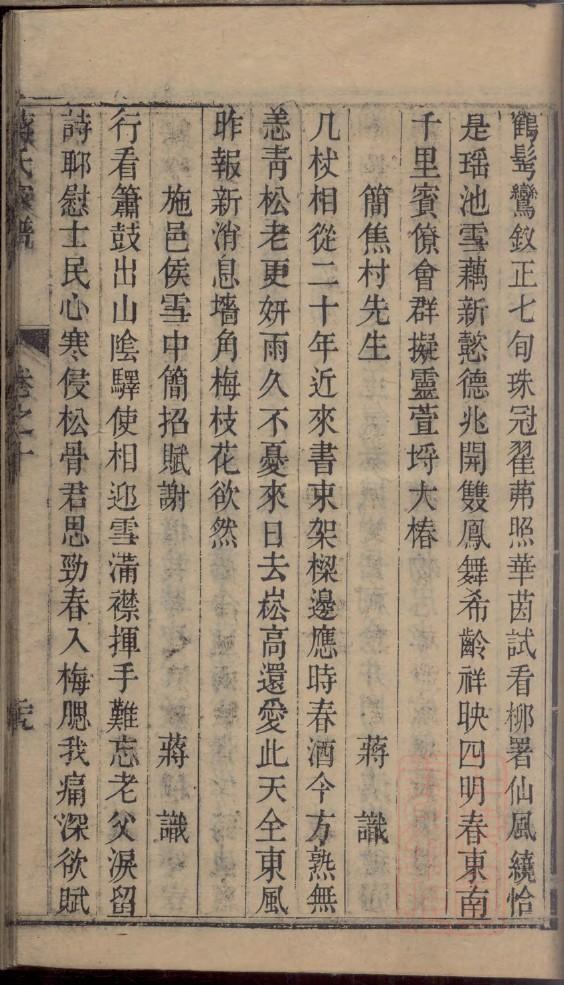 鶴髩鸞釵正七旬珠冠翟茀照華茵試看柳署仙風繞恰
是瑶池雪藕新懿德兆開雙鳳舞希齡祥映四明春東南
千里賓僚會群擬靈萱埒大椿
簡焦村先生 蔣識
几杖相從二十年近來書束架樑邊應時春酒今方熟無
恙青松老更妍雨久不憂來日去崧高還愛此天全東風
昨報新消息墻角梅枝花欲然
施邑侯雪中簡招賦謝 蔣識
行看簫鼓出山陰驛使相迎雪滿襟揮手難忘老父淚留
詩聊慰士民心寒侵松骨君思勁春入梅腮我痛深欲賦
氏
卷之十